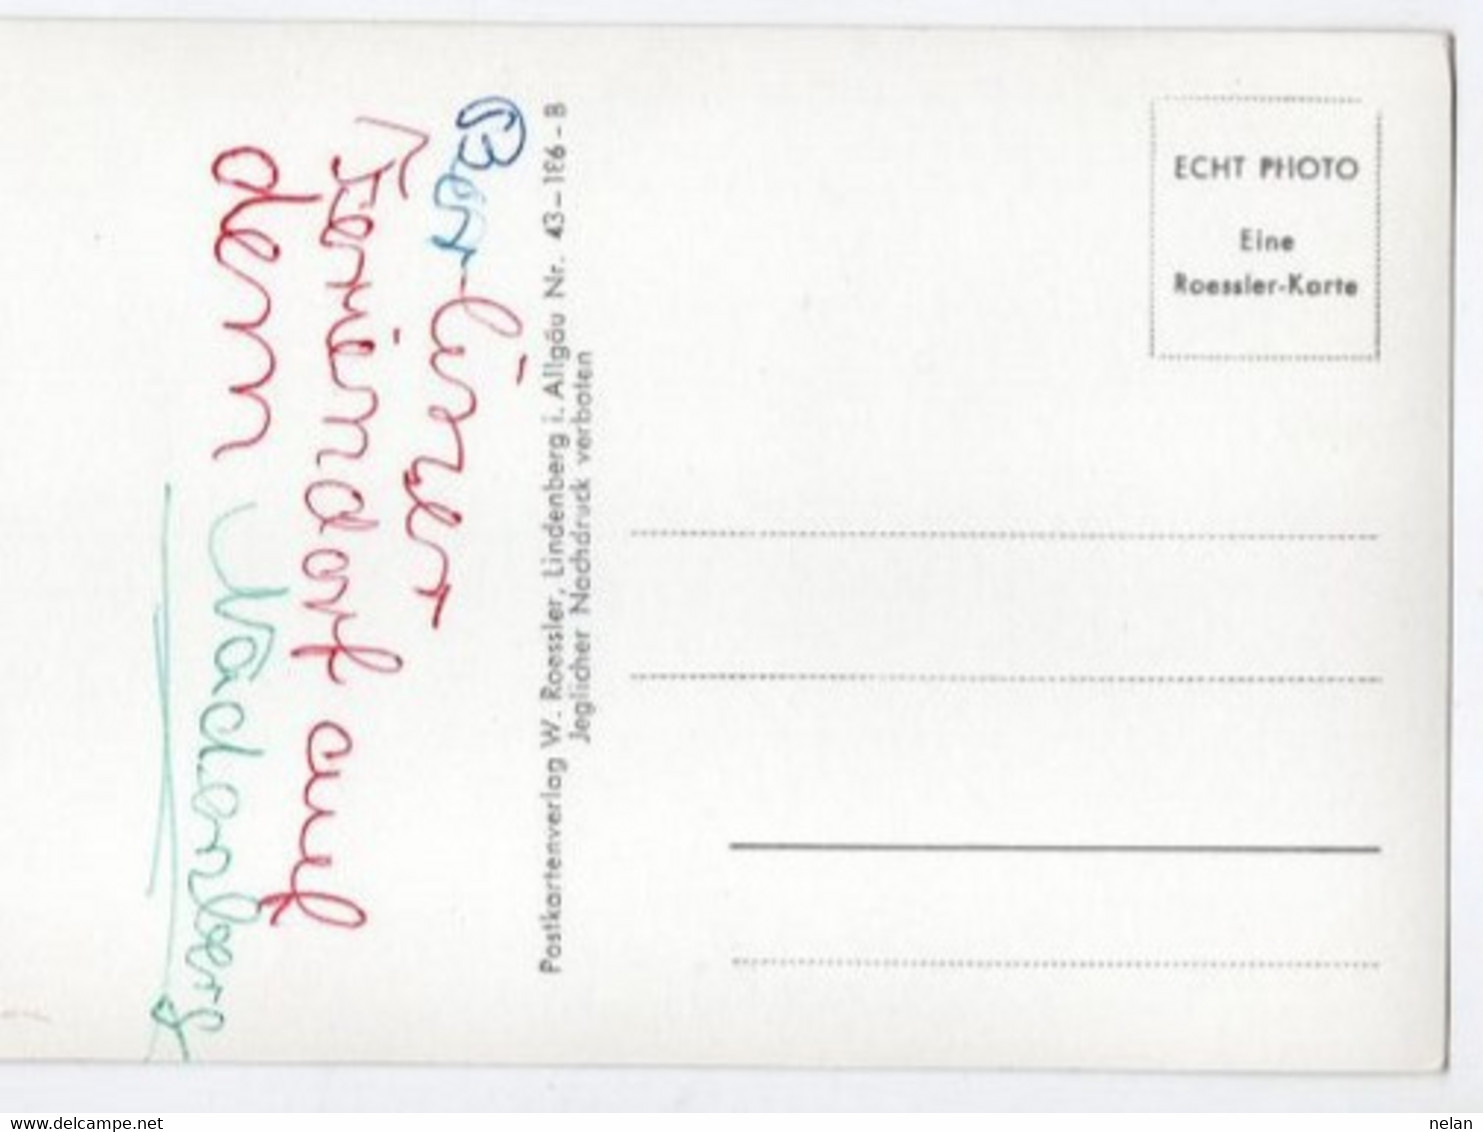 Ber-liner
Feriendorf auf
dem Nadenberg
Postkartenverlag W. Roessler, Lindenberg i. Allgäu Nr. 43-186-B
Jeglicher Nachdruck verboten
ECHT PHOTO
Eine
Roessler-Karte
www.delcampe.net
nelan